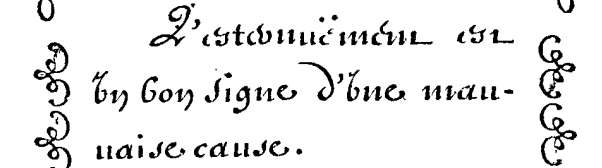 L'esternuëment est
vn bon signe d'vne mau-
uaise cause.